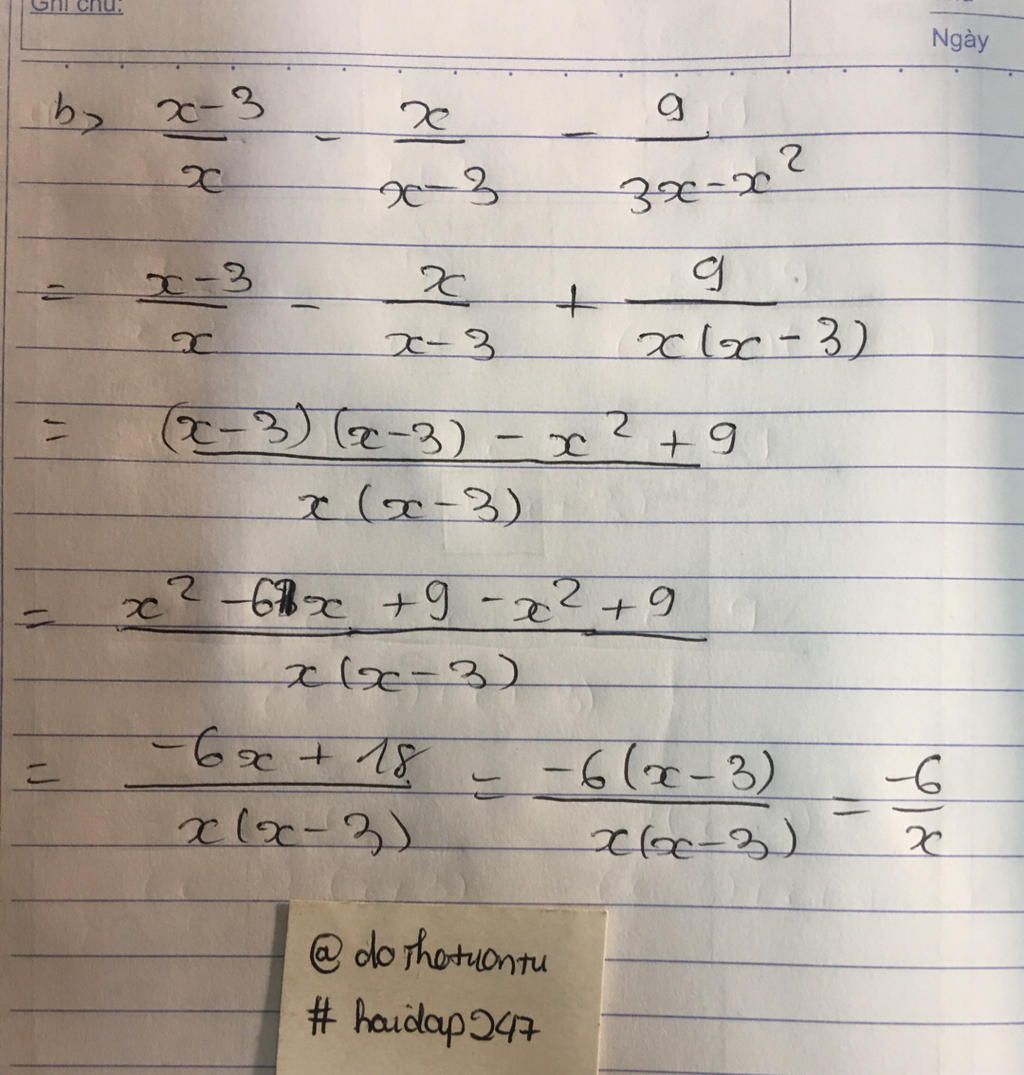 Ghi chú:
Ngày
b> \frac{x-3}{x} - \frac{x}{x-3} - \frac{9}{3x-x^2}
= \frac{x-3}{x} - \frac{x}{x-3} + \frac{9}{x(x-3)}
= \frac{(x-3)(x-3)-x^2+9}{x(x-3)}
= \frac{x^2-6x+9-x^2+9}{x(x-3)}
= \frac{-6x+18}{x(x-3)} = \frac{-6(x-3)}{x(x-3)} = \frac{-6}{x}
@dothotuontu
# hoidap247